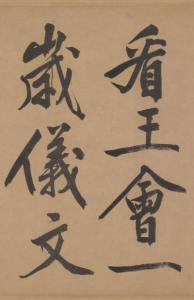 看王會一
歲儀文